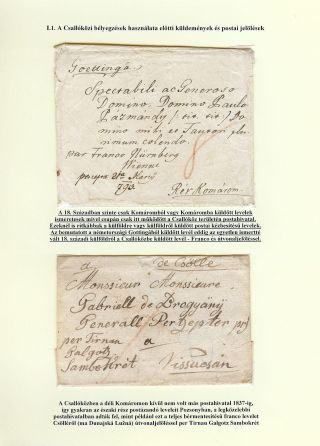 I.1. A Csallóközi bélyegzések használata előtti küldemények és postai jelölések
Goettinga
Spectabili ac Generoso
Domino, Domino Paulo
Pazmandy (sis. sis.) Do
mino mihi et Fautori
nimum colendo.
par Franco Nürnberg
Vienne
793
Per Komarom
A 18. Században szinte csak Komáromból vagy Komáromba küldött levelek
ismeretesek mivel csupán csak itt működött a Csallóköz területén postahivatal.
Ezeknél is ritkábbak a külföldre vagy külföldről küldött postai kézbesítésű levelek.
Az bemutatott a németországi Göttingából küldött levél eddig az egyetlen ismertté
vált 18. századi külföldről a Csallóközbe küldött levél - Franco és útvonaljelöléssel.
a de Csölle
Monsieur Monsieur
Gabriell de Brogyány
Generall Perzeptor
per Tirnau
Galgotz a
Sambokrét Vissocsán
A Csallóközben a déli Komáromon kívül nem volt más postahivatal 1837-ig,
így gyakran az északi rész postázandó leveleit Pozsonyban, a legközelebbi
postahivatalban adták fel, mint például ezt a teljes bérmentesítésű franco levelet
Csölléről (ma Dunajská Lužná) útvonaljelöléssel per Tirnau Galgotz Sambokrét